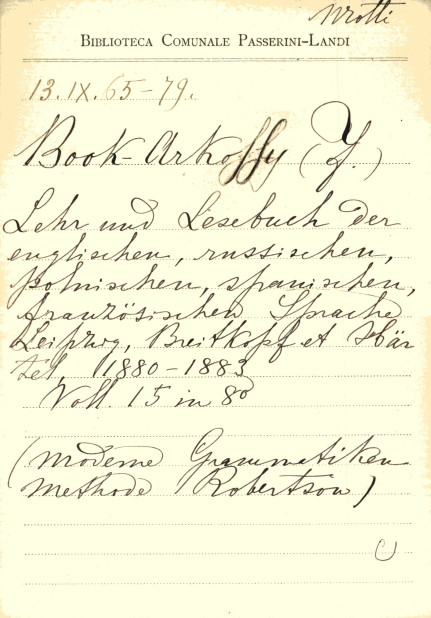 Wrotti
BIBLIOTECA COMUNALE PASSERINI-LANDI
13.IX.65-79.
Book-Arkossy (F.)
Lehr und Lesebuch der
englischen, russischen,
polnischen, spanischen,
französischen Sprache
Leipzig, Breitkopf et Här
tel, 1880-1883
Voll. 15 in 8º
(moderne Grammatiken
Methode Robertson)